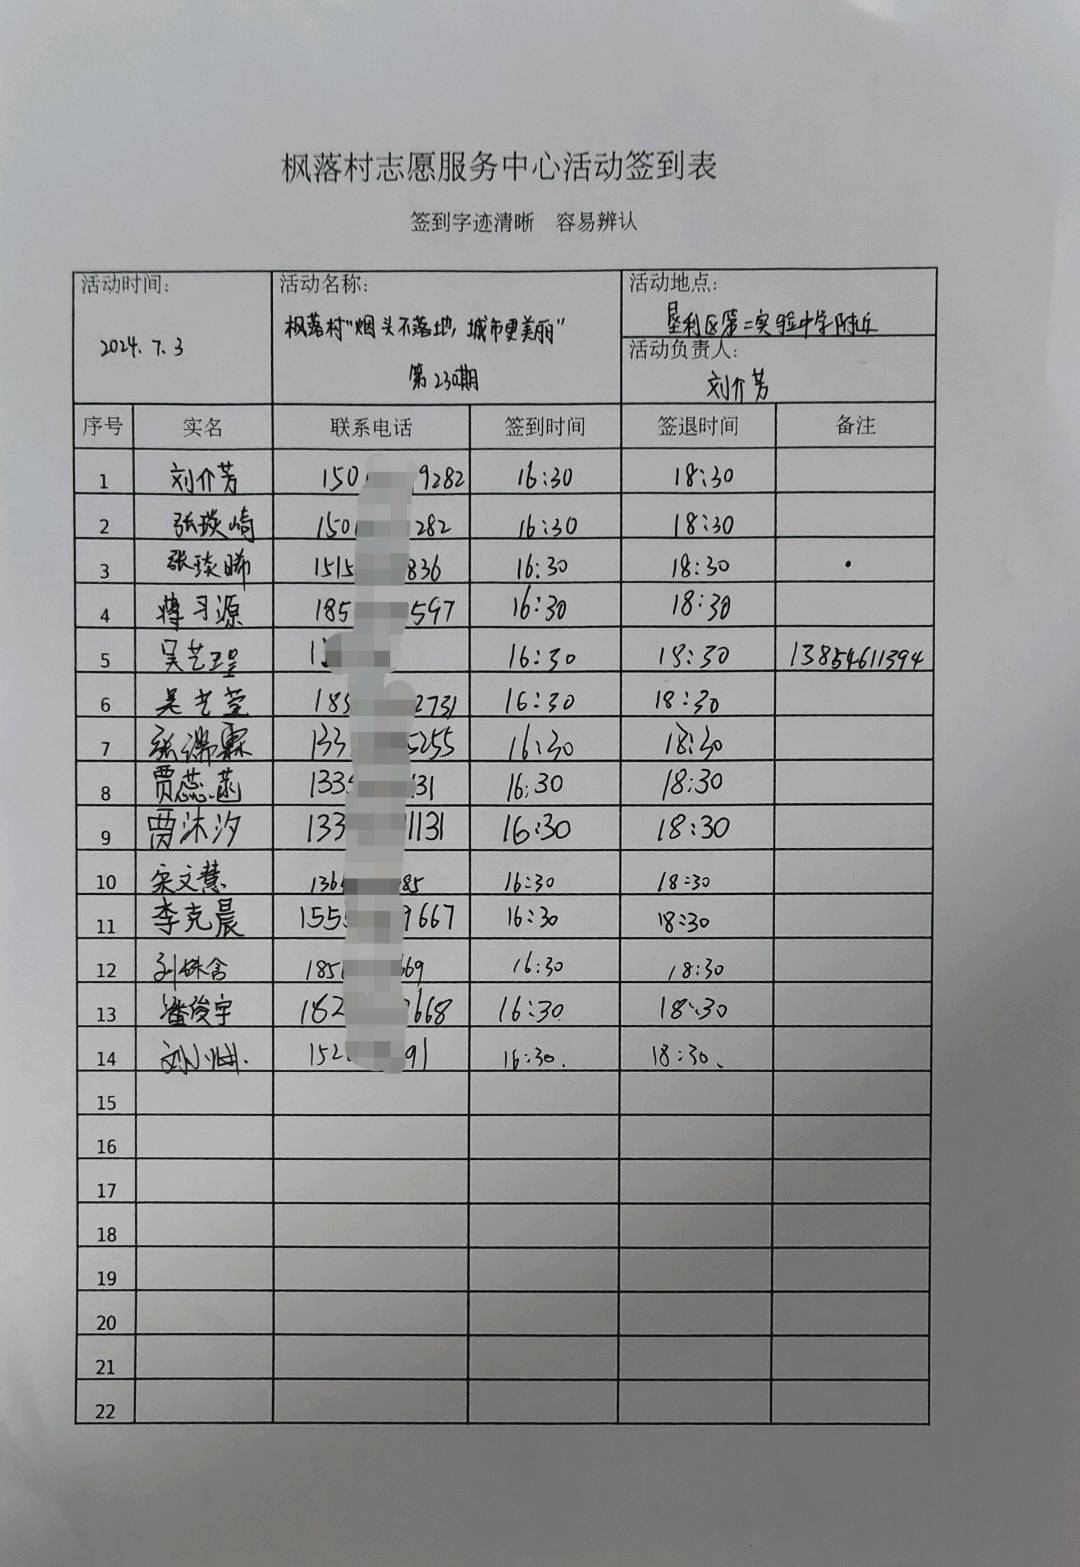 枫落村志愿服务中心活动签到表
签到字迹清晰 容易辨认
活动时间: 2024.7.3
活动名称: 枫落村"烟头不落地,城市更美丽" 第230期
活动地点: 垦利区第二实验中学附近
活动负责人: 刘介芳
序号 实名 联系电话 签到时间 签退时间 备注
1 刘介芳 150 9282 16:30 18:30
2 张琰崎 150 282 16:30 18:30
3 张琰晞 1515 836 16:30 18:30
4 蒋习源 185 597 16:30 18:30
5 吴艺 16:30 18:30 13854611394
6 吴艺萱 185 2731 16:30 18:30
7 张瑞霖 133 5255 16:30 18:30
8 贾蕊菡 133 131 16:30 18:30
9 贾沐汐 133 1131 16:30 18:30
10 宋文慧 136 85 16:30 18:30
11 李克晨 155 9667 16:30 18:30
12 刘姝含 185 669 16:30 18:30
13 潘俊宇 182 668 16:30 18:30
14 刘小 152 91 16:30. 18:30.
15
16
17
18
19
20
21
22